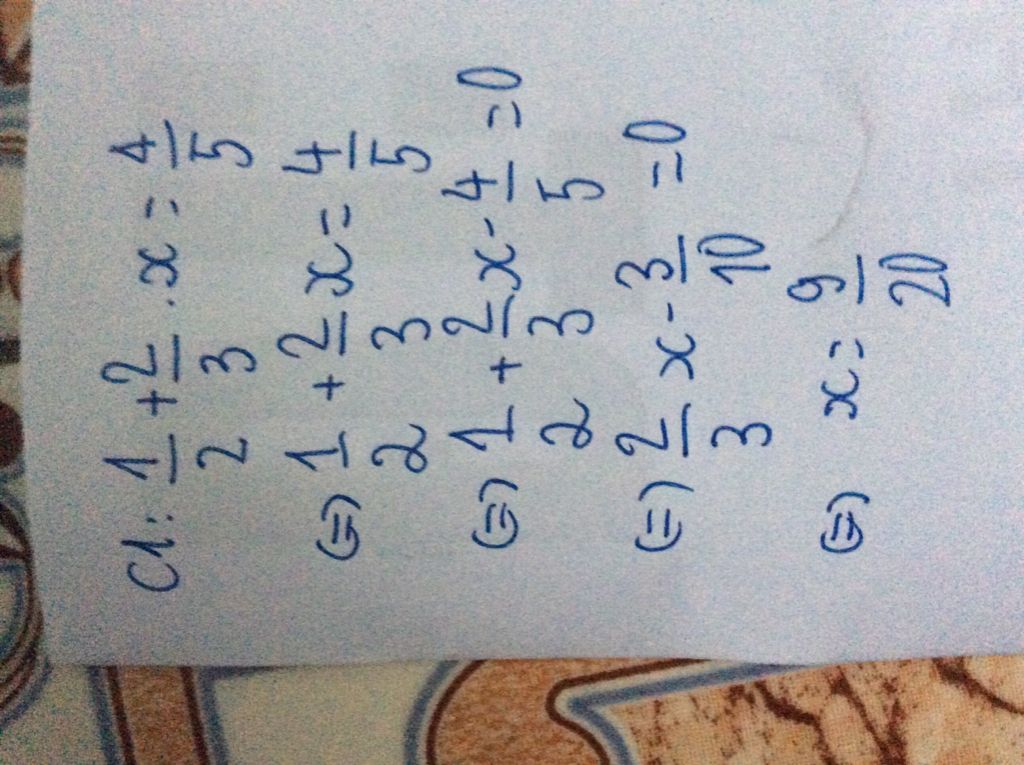 C1: 1/2 + 2/3 . x = 4/5
(=) 1/2 + 2/3 x = 4/5
(=) 1/2 + 2/3 x - 4/5 = 0
(=) 2/3 x - 3/10 = 0
(=) x = 9/20